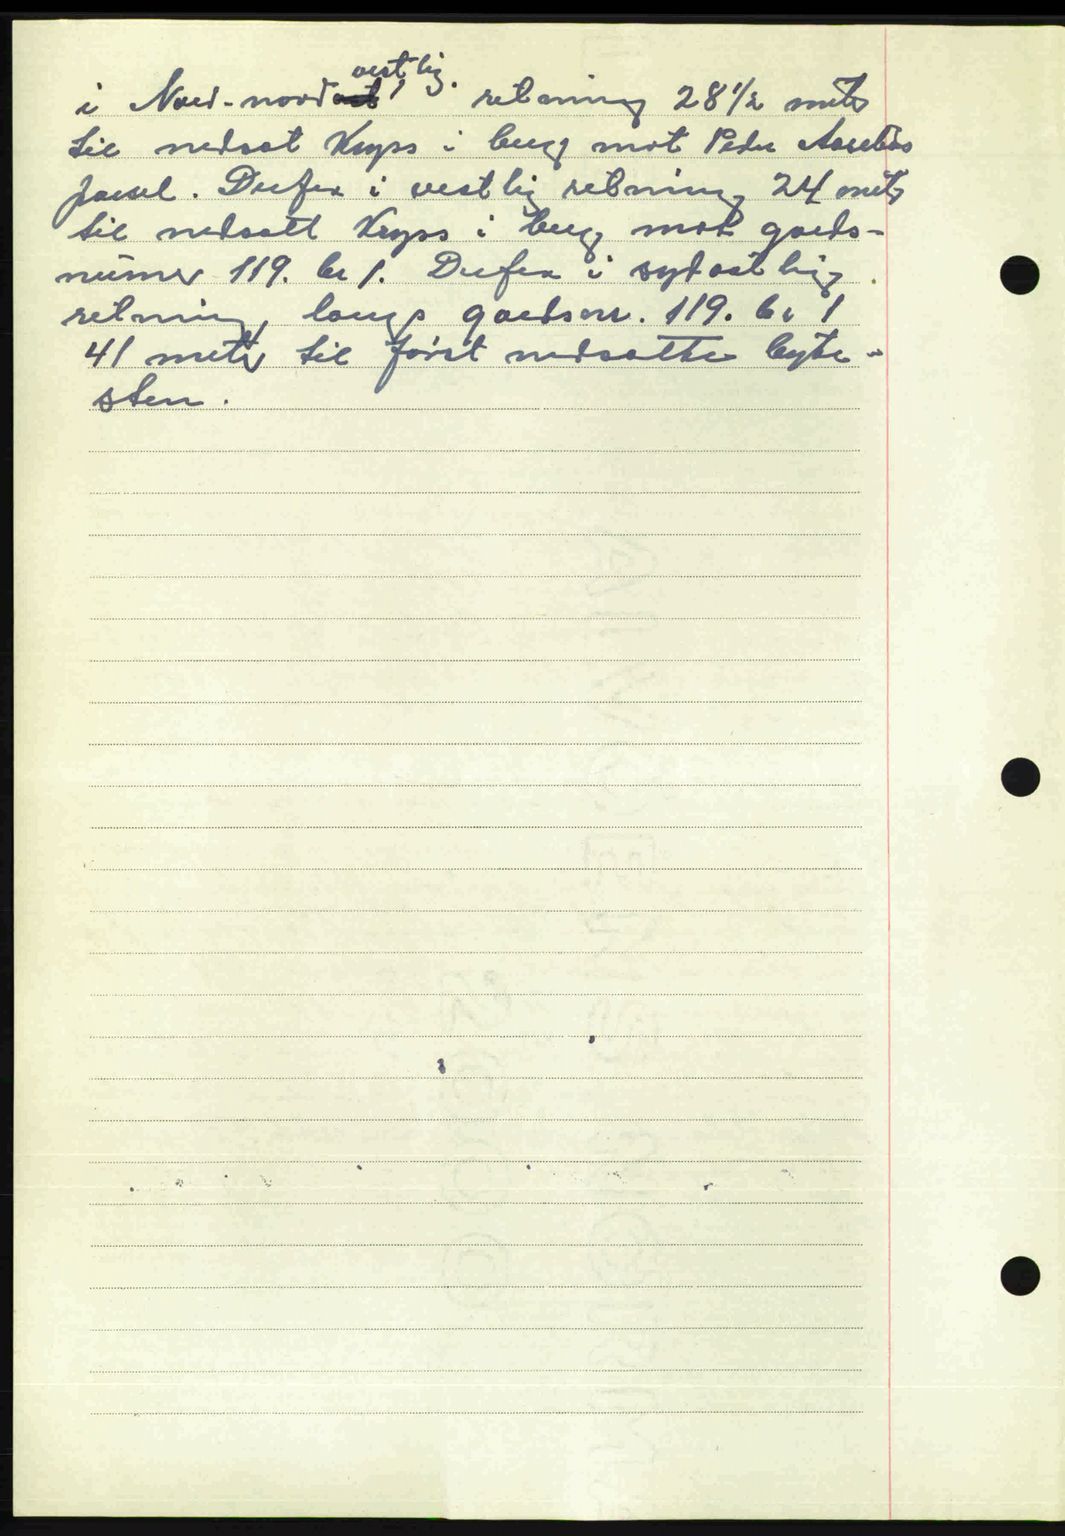 vestlig.
i Nord-nord retning 28 1/2 meter
til nedsat Kryss i berg mot Peder
parsel. Derfra i vestlig retning 24 meter
til nedsatt Kryss i berg mot gards-
numer 119. br 1. Derfra i sydostlig
retning langs gardsnr. 119. br 1
41 meter til først nedsatte byte-
sten.